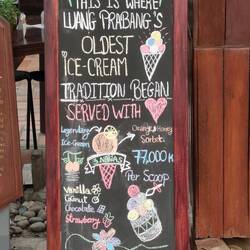 THIS IS WHERE
LUANG PRABANG'S
OLDEST
ICE-CREAM
TRADITION BEGAN
SERVED WITH
Legendary
Ice-Cream
Orange & Honey
Sorbet
3 NAGAS
77,000 K
Per Scoop
Vanilla
Coconut
Chocolate
Strawberry